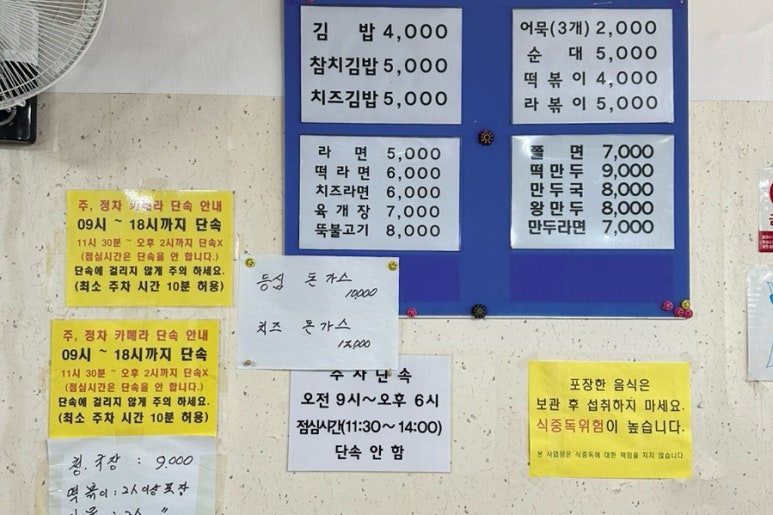 김 밥 4,000
참치김밥 5,000
치즈김밥 5,000
어묵(3개) 2,000
순 대 5,000
떡 볶 이 4,000
라 볶 이 5,000
라 면 5,000
떡 라 면 6,000
치즈라면 6,000
육 개 장 7,000
뚝불고기 8,000
쫄 면 7,000
떡 만 두 9,000
만 두 국 8,000
왕 만 두 8,000
만두라면 7,000
주, 정차 카메라 단속 안내
09시 ~ 18시까지 단속
11시 30분 ~ 오후 2시까지 단속X
(점심시간은 단속을 안 합니다.)
단속에 걸리지 않게 주의 하세요.
(최소 주차 시간 10분 허용)
등심 돈까스
10,000
치즈 돈까스
12,000
주, 정차 카메라 단속 안내
09시 ~ 18시까지 단속
11시 30분 ~ 오후 2시까지 단속X
(점심시간은 단속을 안 합니다.)
단속에 걸리지 않게 주의 하세요.
(최소 주차 시간 10분 허용)
주 차 단 속
오전 9시~오후 6시
점심시간(11:30~14:00)
단속 안 함
포장한 음식은
보관 후 섭취하지 마세요.
식중독위험이 높습니다.
본 사업장은 식중독에 대한 책임을 지지 않습니다.
청. 국장 : 9,000
떡 볶이 : 2人이상 포장